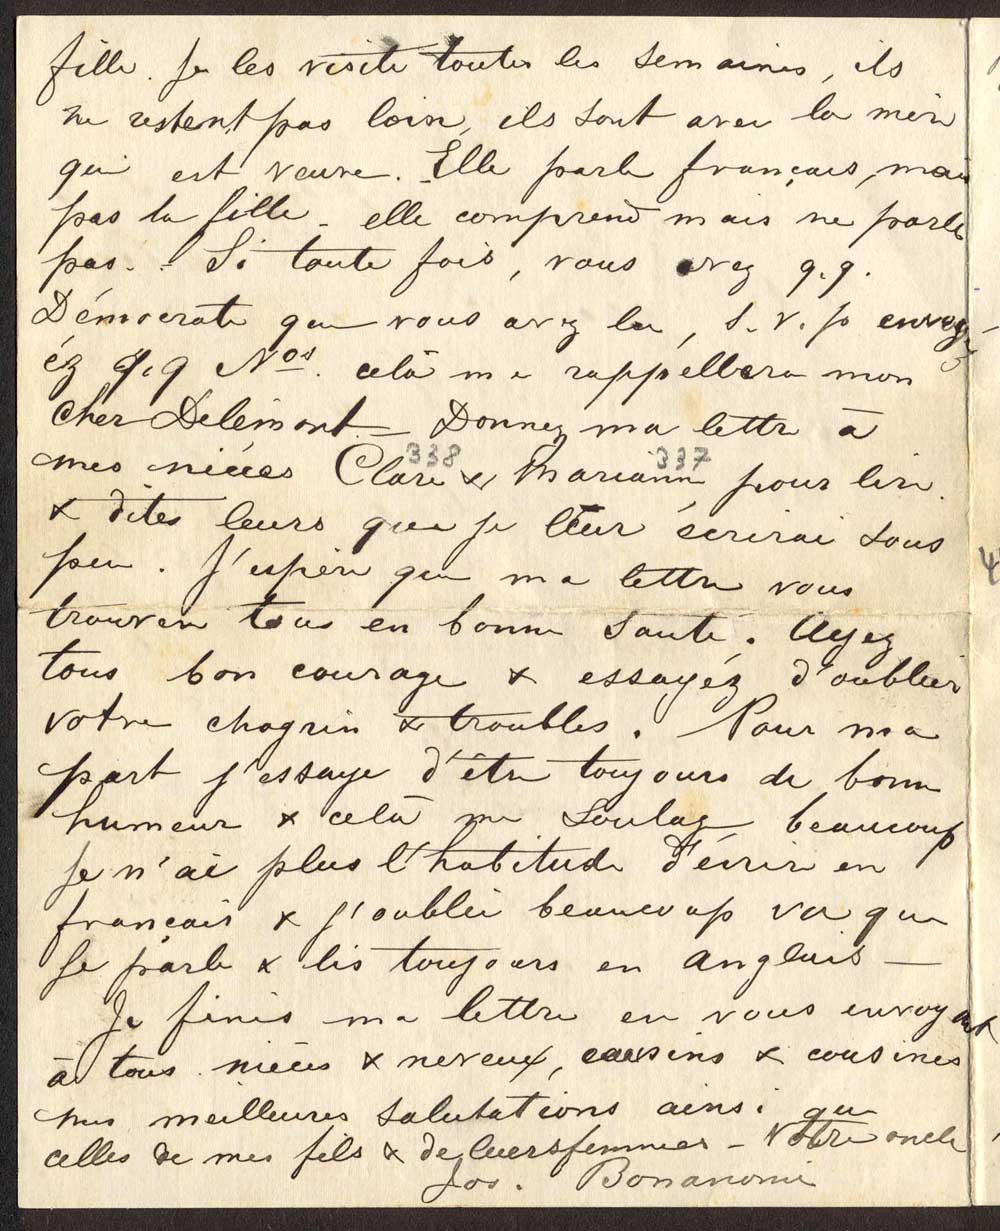 fille. Je les visite toutes les semaines, ils
ne restent pas loin, ils sont avec la mère
qui est veuve. Elle parle français, mais
pas la fille - elle comprend mais ne parle
pas. - Si toute fois, vous avez q.q.
Démocrate que vous avez lu, S.V.p envoy-
éz q,q Nos. celà me rappellera mon
cher Delémont - Donnez ma lettre à
338 337
mes nièces Clare & Mariann pour lire.
& dites leurs que je leur écrirai sous
peu. J'espère que ma lettre vous
trouvera tous en bonne santé. Ayez
tous bon courage & essayéz d'oublier
votre chagrin & troubles. Pour ma
part j'essaye d'être toujours de bonne
humeur & celà me soulage beaucoup
Je n'ai plus l'habitude d'écrire en
français & j'oublie beaucoup vu que
Je parle & lis toujours en anglais -
Je finis ma lettre en vous envoyant
à tous nièces & neveux, cousins & cousines
mes meilleures salutations ainsi que
celles de mes fils & de leurs femmes - Votre oncle
Jos. Bonanomi